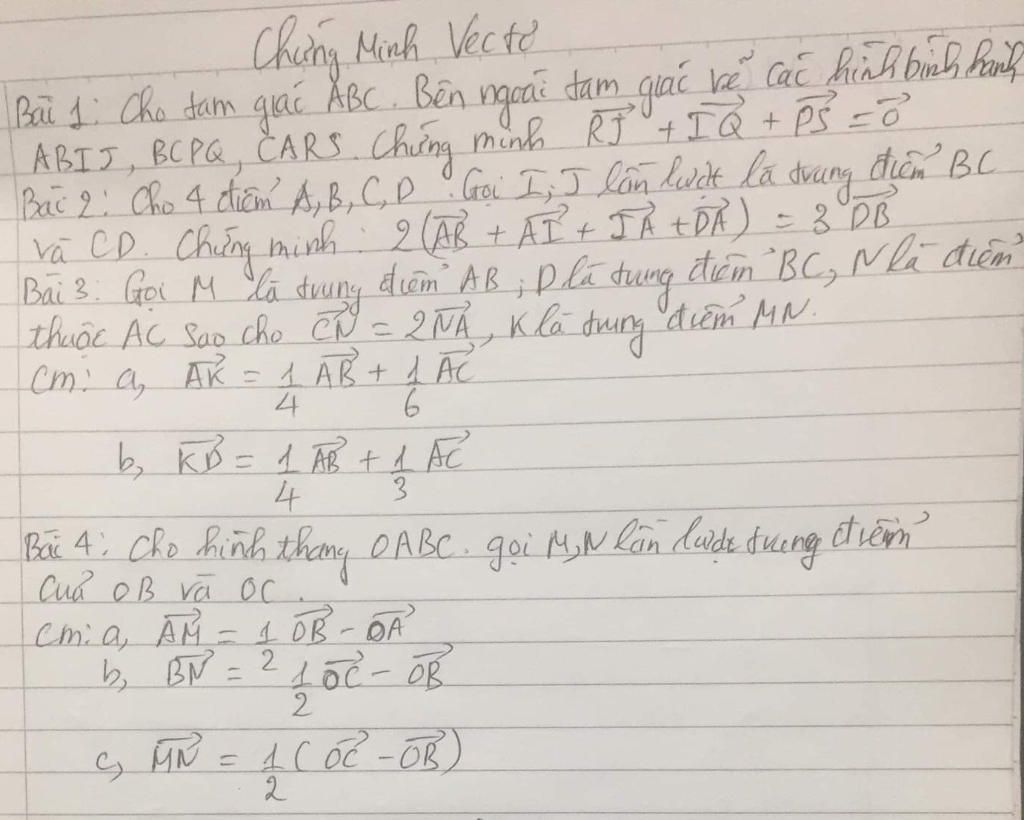 Chứng Minh Vectơ
Bài 1: Cho tam giác ABC. Bên ngoài tam giác vẽ các hình bình hành
ABIJ, BCPQ, CARS. Chứng minh \(\overrightarrow{RJ} + \overrightarrow{IQ} + \overrightarrow{PS} = \overrightarrow{0}\)
Bài 2: Cho 4 điểm A, B, C, D. Gọi I, J lần lượt là trung điểm BC
và CD. Chứng minh: \(2(\overrightarrow{AB} + \overrightarrow{AI} + \overrightarrow{JA} + \overrightarrow{DA}) = 3\overrightarrow{DB}\)
Bài 3: Gọi M là trung điểm AB; D là trung điểm BC, N là điểm
thuộc AC sao cho \(\overrightarrow{CN} = 2\overrightarrow{NA}\), K là trung điểm MN.
Cm: a, \(\overrightarrow{AK} = \frac{1}{4}\overrightarrow{AB} + \frac{1}{6}\overrightarrow{AC}\)
b, \(\overrightarrow{KD} = \frac{1}{4}\overrightarrow{AB} + \frac{1}{3}\overrightarrow{AC}\)
Bài 4: Cho hình thang OABC. gọi M, N lần lượt trung điểm
của OB và OC.
Cm: a, \(\overrightarrow{AM} = \frac{1}{2}\overrightarrow{OB} - \overrightarrow{OA}\)
b, \(\overrightarrow{BN} = \frac{1}{2}\overrightarrow{OC} - \overrightarrow{OB}\)
c, \(\overrightarrow{MN} = \frac{1}{2}(\overrightarrow{OC} - \overrightarrow{OB})\)